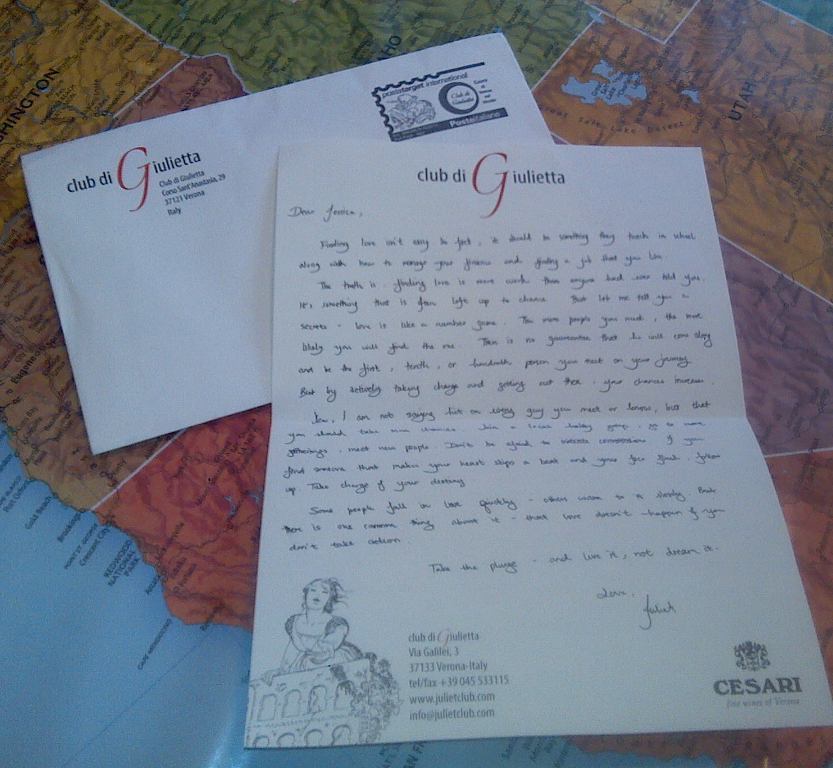 HINGTON
HO
UTAH
Great Salt Lake Desert
postatarget international
Club di Giulietta
Posteitaliane
club di Giulietta
Club di Giulietta
Corso Sant'Anastasia, 29
37121 Verona
Italy
club di Giulietta
Dear Jessica,
Finding love isn't easy. In fact, it should be something they teach in school
along with how to manage your finances and finding a job that you like.
The truth is, finding love is more work than anyone had ever told you.
It's something that is far left up to chance. But let me tell you a
secret - love is like a number game. The more people you meet, the more
likely you will find the one. There is no guarantee that he will come along
and be the first, tenth, or hundredth person you meet on your journey.
But by actively taking charge and getting out there, your chances increase.
Now, I am not saying flirt on every guy you meet or know, but that
you should take more chances. Join a local hobby group, go to more
gatherings, meet new people. Don't be afraid to initiate conversations. If you
find someone that makes your heart skips a beat and your face flush, follow
up. Take charge of your destiny.
Some people fall in love quickly - others warm to it slowly. But
there is one common thing about it - that love doesn't happen if you
don't take action.
Take the plunge - and live it, not dream it.
Love,
Juliet
club di Giulietta
Via Galilei, 3
37133 Verona-Italy
tel/fax +39 045 533115
www.julietclub.com
info@julietclub.com
CESARI
fine wines of Verona
REDWOOD
NATIONAL
PARK
Gold Beach
Crescent City